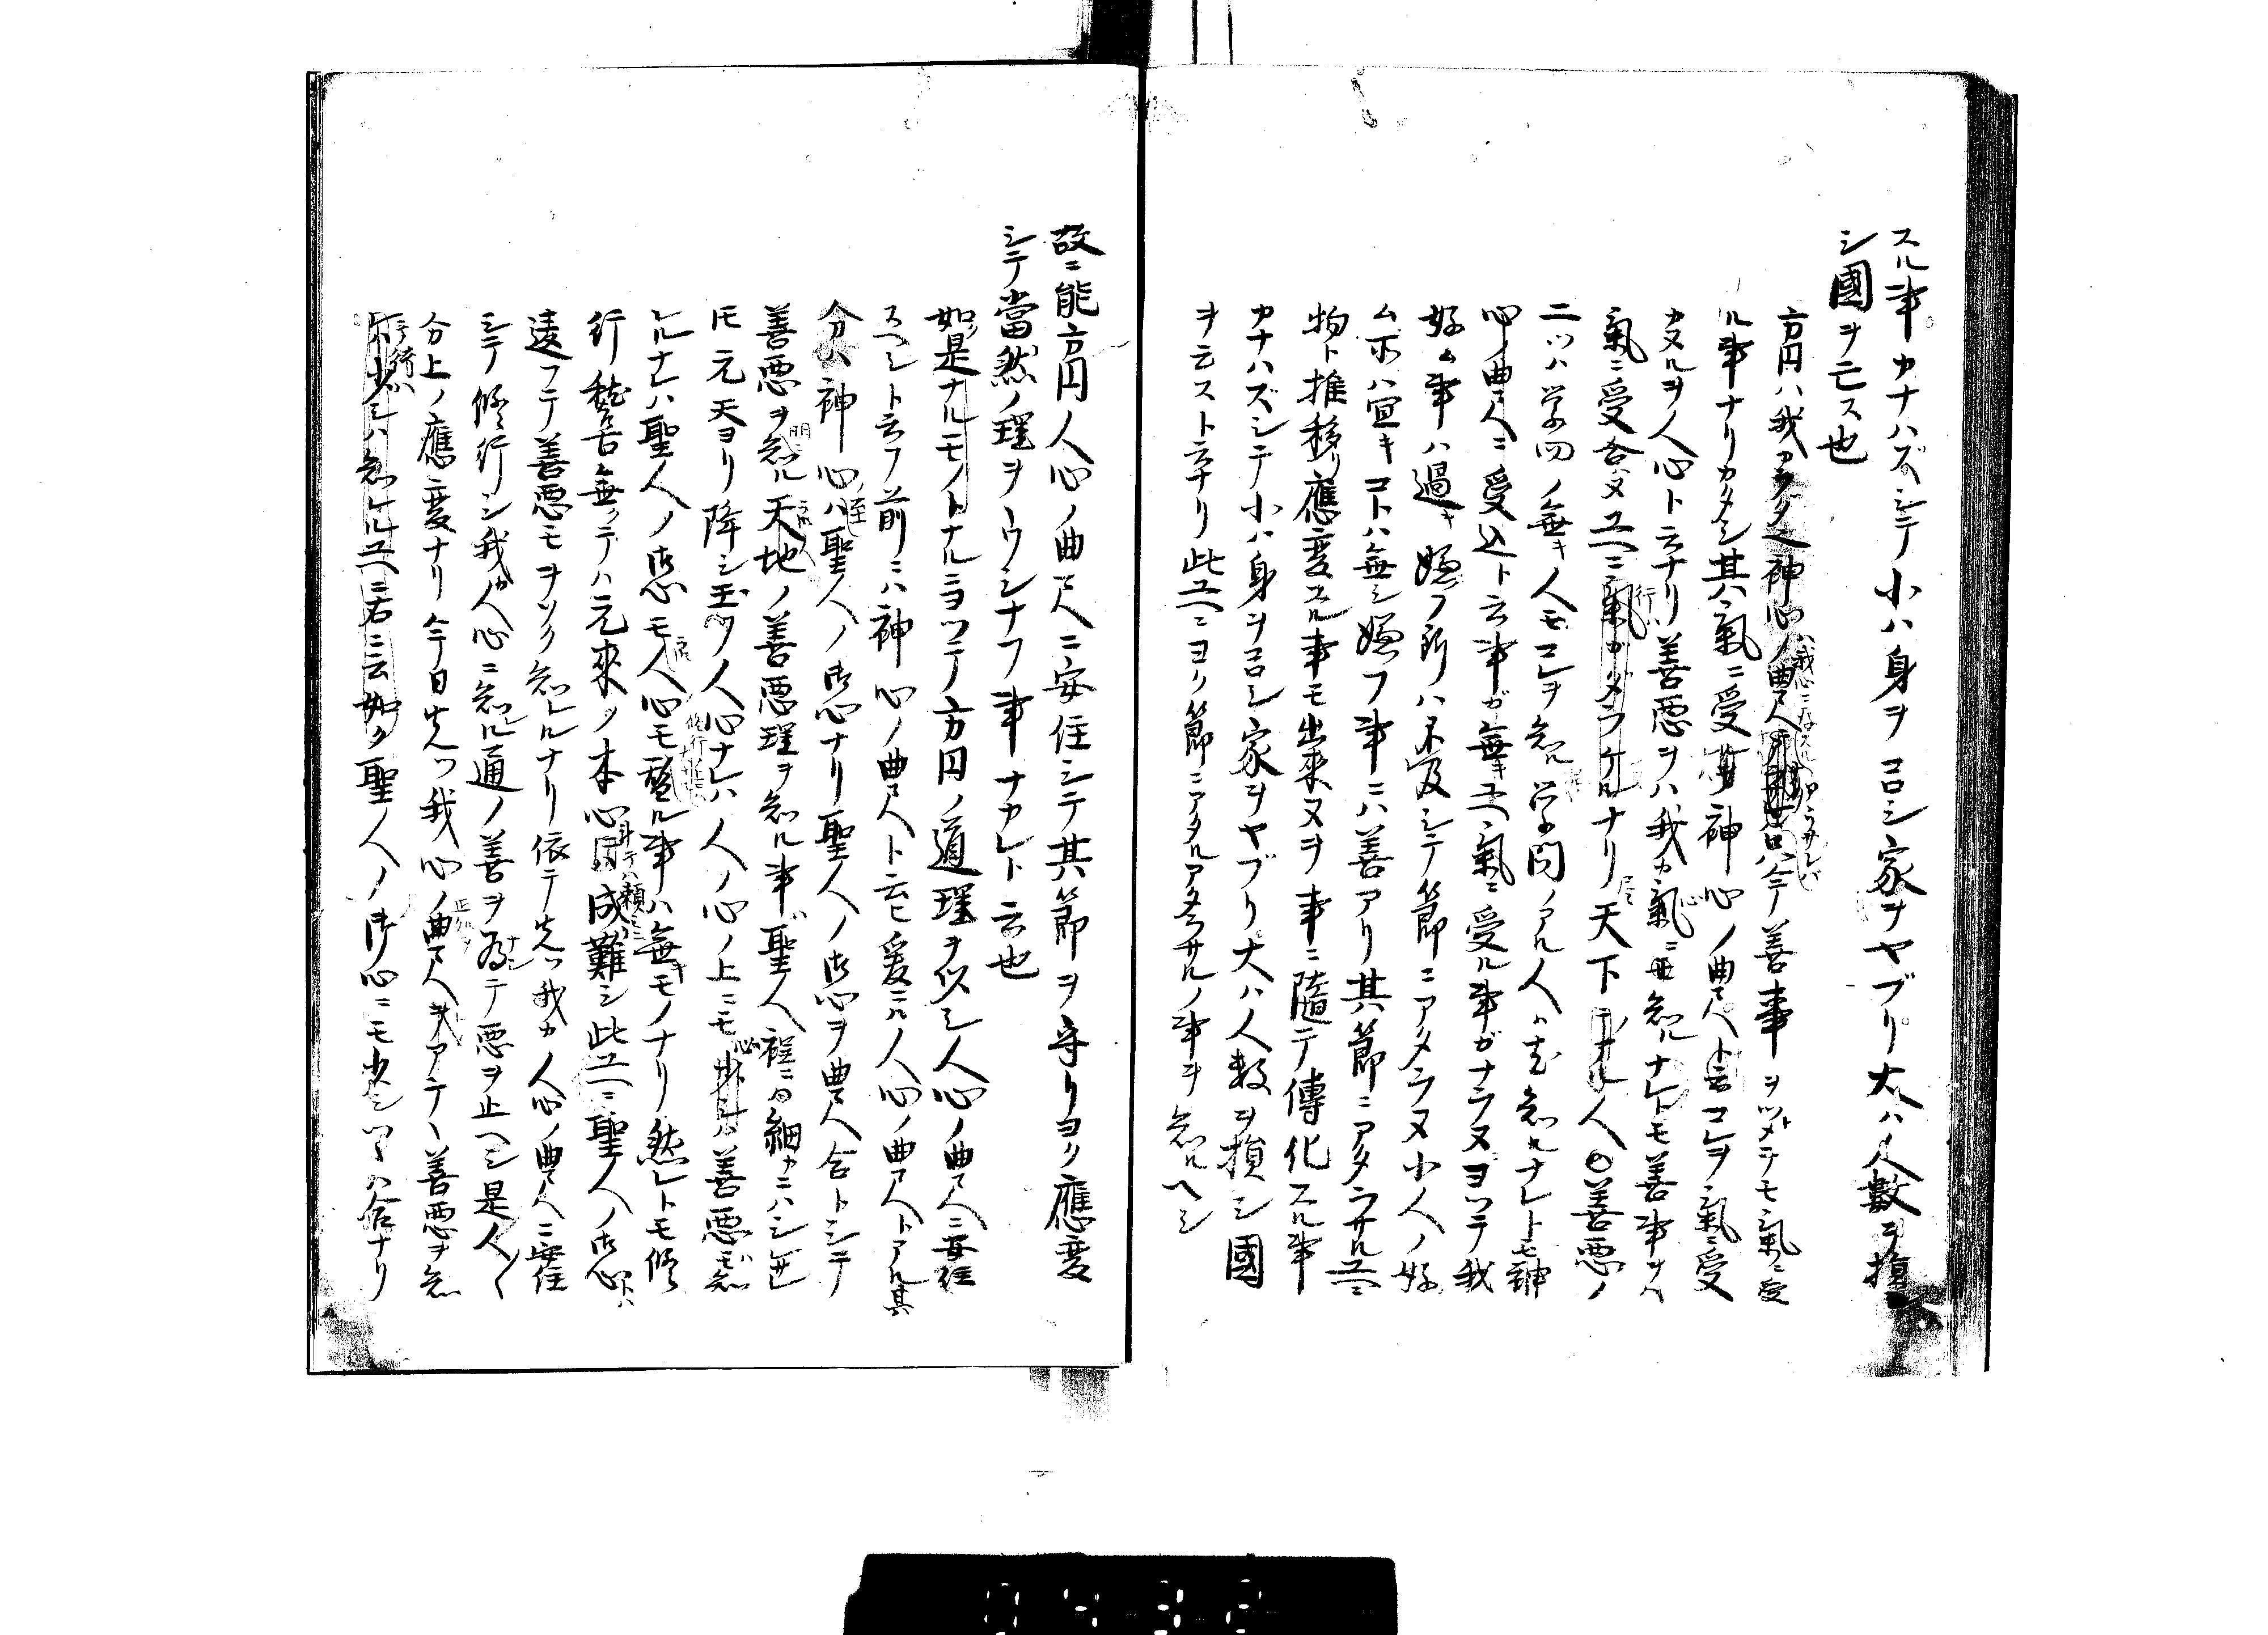 スル事カナハズシテ小ハ身ヲコロシ家ヲヤブリ大ハ人數ヲ損
シ國ヲ亡ス也
方円ハ我 神心ノ曲尺 今善事ヲツトメテモ氣ニ受
ル事ナリカタシ其ハ氣ニ受 神心ノ曲尺ト云コレヲ氣ニ受
カヌルヲ人心ト云ナリ善悪ヲハ我カ氣ニ 知ルナレトモ善事ヲハ
氣ニ受合ヌユヘニ氣カ ケルナリ天下ニ 人ノ善悪ノ
二ツハ学問ノ無キ人モコレヲ知ル学問ノアル人ハ 知ルナレトモ神
心ノ曲尺ニ受込ト云事ガ無キユヘ氣ニ受ル事ガナラヌヨツテ我
好ム事ハ過キ嫌フ所ハ不及シテ節ニアタラヌ小人ノ好
ム所ハ宜キコトハ無シ嫌フ事ニハ善アリ其節ニアタラサルユヘニ
物ト推移リ應変スル事モ出来ヌヲ事ニ隨テ傳化スル事
カナハズシテ小ハ身ヲコロシ家ヲヤブリ大ハ人数ヲ損シ國
ヲ亡ストナリ此ユヘニヨク節ニアタルアタラサルノ事ヲ知ルヘシ
故ニ能方円人心ノ曲尺ニ安住シテ其節ヲ守リヨク應変
シテ當然ノ理ヲウシナフ事ナカレト云也
如是ナルモノトナルニヨツテ方円ノ道理ヲ似シ人心ノ曲尺ニ安住
スヘシト云フ前ニハ神心ノ曲尺ト云ヒ爰ニハ人心ノ曲尺トアル其
分ハ神心ハ聖人ノ御心ナリ聖人ノ御心ヲ曲尺合トシテ
善悪ヲ知ル天地ノ善悪理ヲ知ル事ハ聖人程ニ 細カニハシレ
トモ元天ヨリ降シ玉フ人心ナレハ人ノ心ノ上ニモ 善悪ヲ知
ルナレハ聖人ノ御心モ人心モ 事ハ無キモノナリ然レトモ修
行稽古無クテハ元来ノ本心 成難シ此ユヘニ聖人ノ御心トハ
違フテ善悪モヲソク知レルナリ依テ先ツ我カ人心ノ曲尺ニ安住
シテ修行シ我カ人心ニ知ル通ノ善ヲ為テ悪ヲ止ヘシ是人々
分上ノ應変ナリ今日先ツ我心ノ曲尺ヲアテ善悪ヲ知
少シハ知レルユヘニ右ニ云如ク聖人ノ御心ニモ少シツヽハ合ナリ